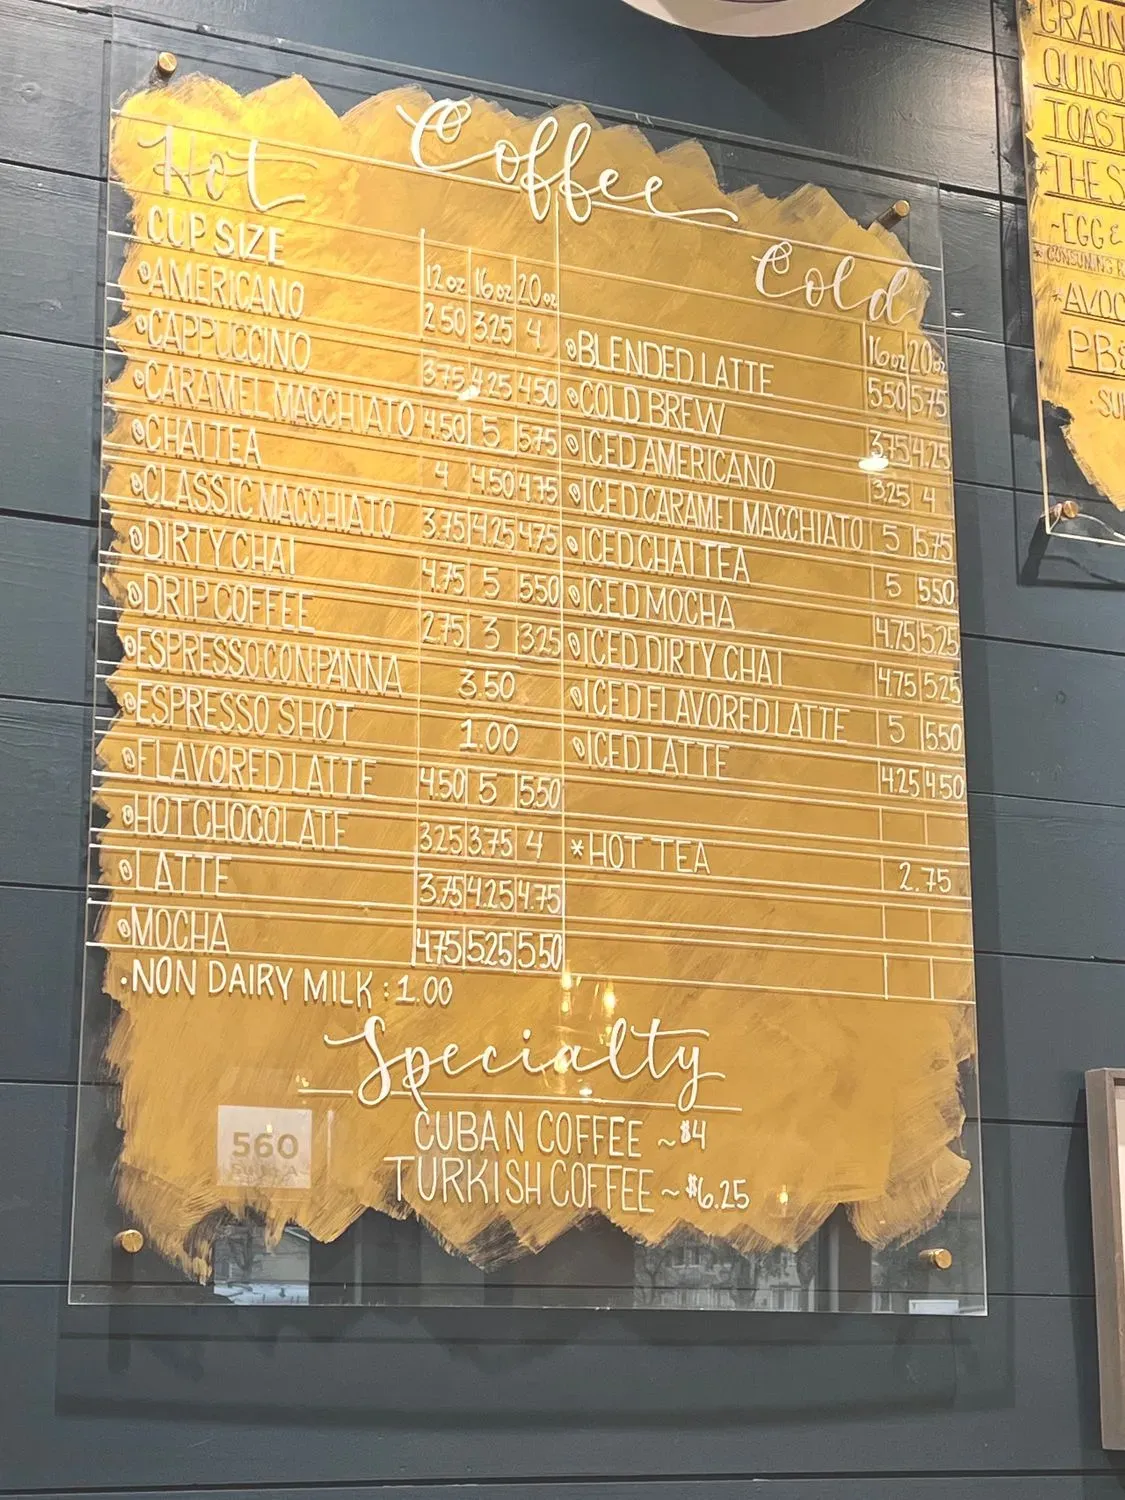 Coffee
Hot
CUP SIZE 12oz 16oz 20oz
AMERICANO 2.50 3.25 4
CAPPUCCINO 3.75 4.25 4.50
CARAMEL MACCHIATO 4.50 5 5.75
CHAI TEA 4 4.50 4.75
CLASSIC MACCHIATO 3.75 4.25 4.75
DIRTY CHAI 4.75 5 5.50
DRIP COFFEE 2.75 3 3.25
ESPRESSO CON PANNA 3.50
ESPRESSO SHOT 1.00
FLAVORED LATTE 4.50 5 5.50
HOT CHOCOLATE 3.25 3.75 4
LATTE 3.75 4.25 4.75
MOCHA 4.75 5.25 5.50
·NON DAIRY MILK : 1.00
Cold
16oz 20oz
BLENDED LATTE 5.50 5.75
COLD BREW 3.75 4.25
ICED AMERICANO 3.25 4
ICED CARAMEL MACCHIATO 5 5.75
ICED CHAI TEA 5 5.50
ICED MOCHA 4.75 5.25
ICED DIRTY CHAI 4.75 5.25
ICED FLAVORED LATTE 5 5.50
ICED LATTE 4.25 4.50
*HOT TEA 2.75
Specialty
CUBAN COFFEE ~$4
TURKISH COFFEE ~$6.25
560
GRAIN
QUINO
TOAST
THE S
~EGG &
* CONSUMING R
*AVOC
PB&
·SU